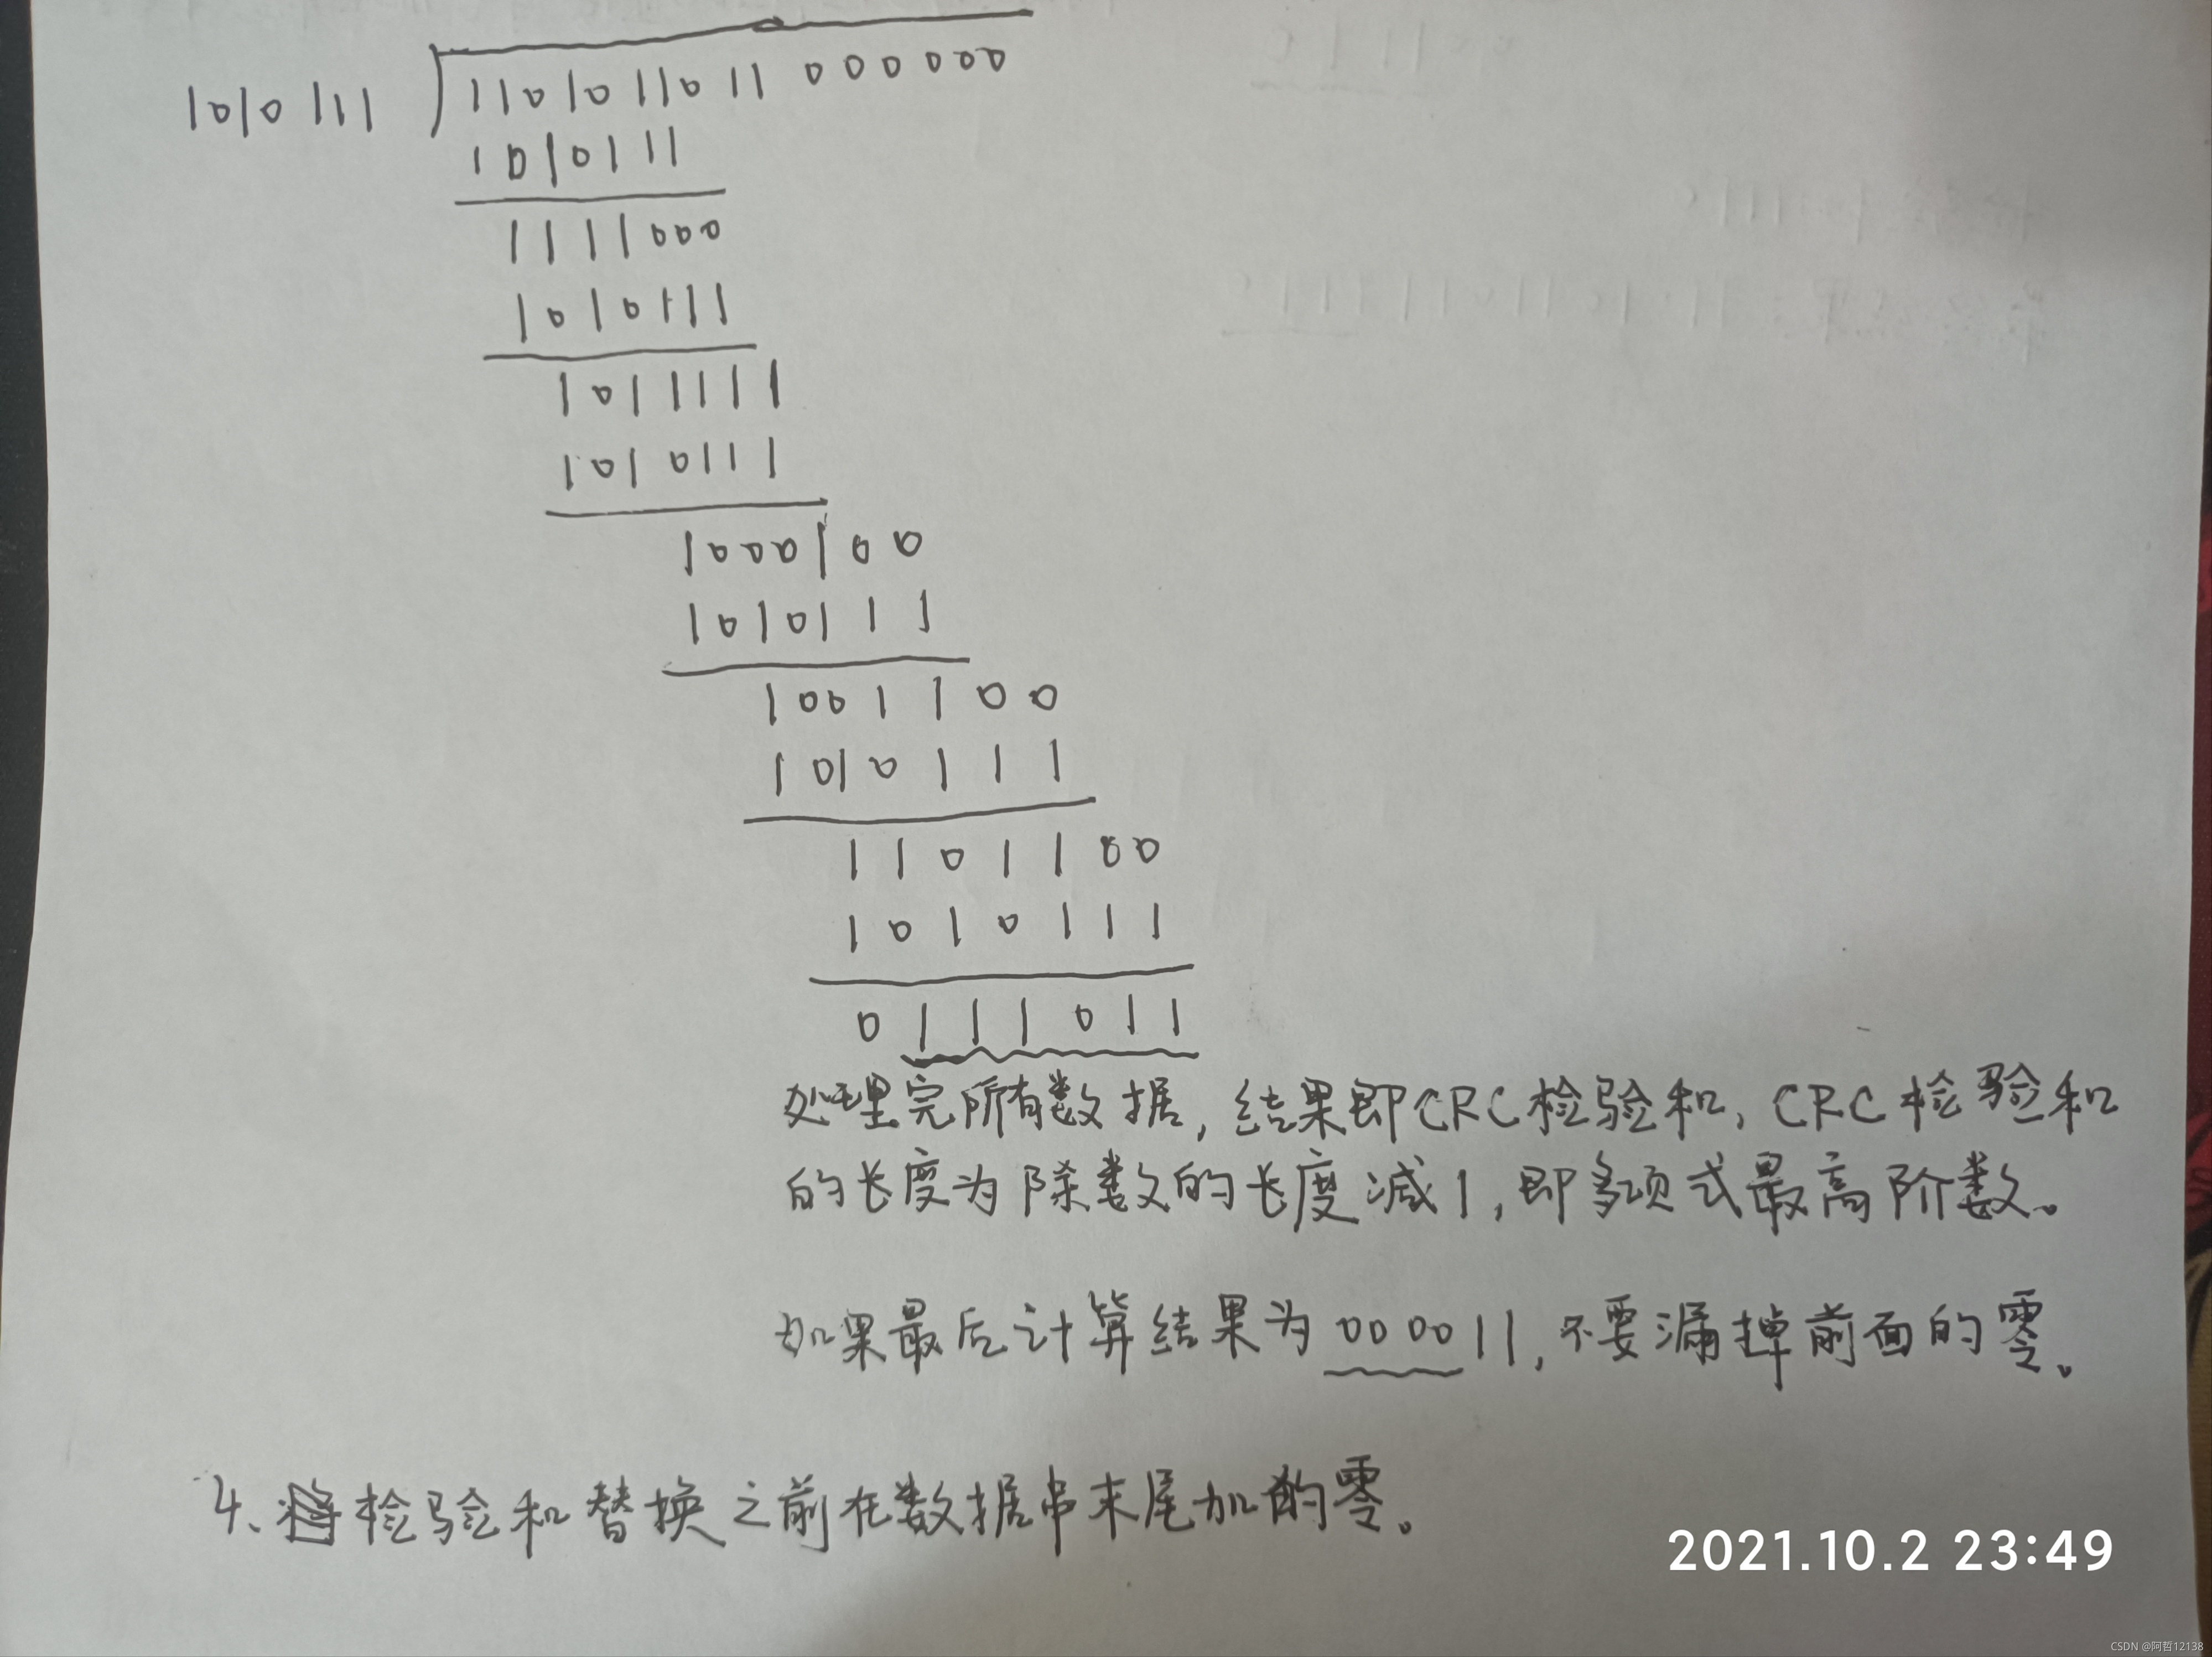 1010111 1101011011 000000
1010111
1111000
1010111
1011111
1010111
1000100
1010111
1001100
1010111
1101100
1010111
0111011
处理完所有数据,结果即CRC检验和,CRC检验和
的长度为除数的长度减1,即多项式最高阶数。
如果最后计算结果为000011,不要漏掉前面的零。
4、将检验和替换之前在数据串末尾加的零。
2021.10.2 23:49
CSDN @阿哲12138